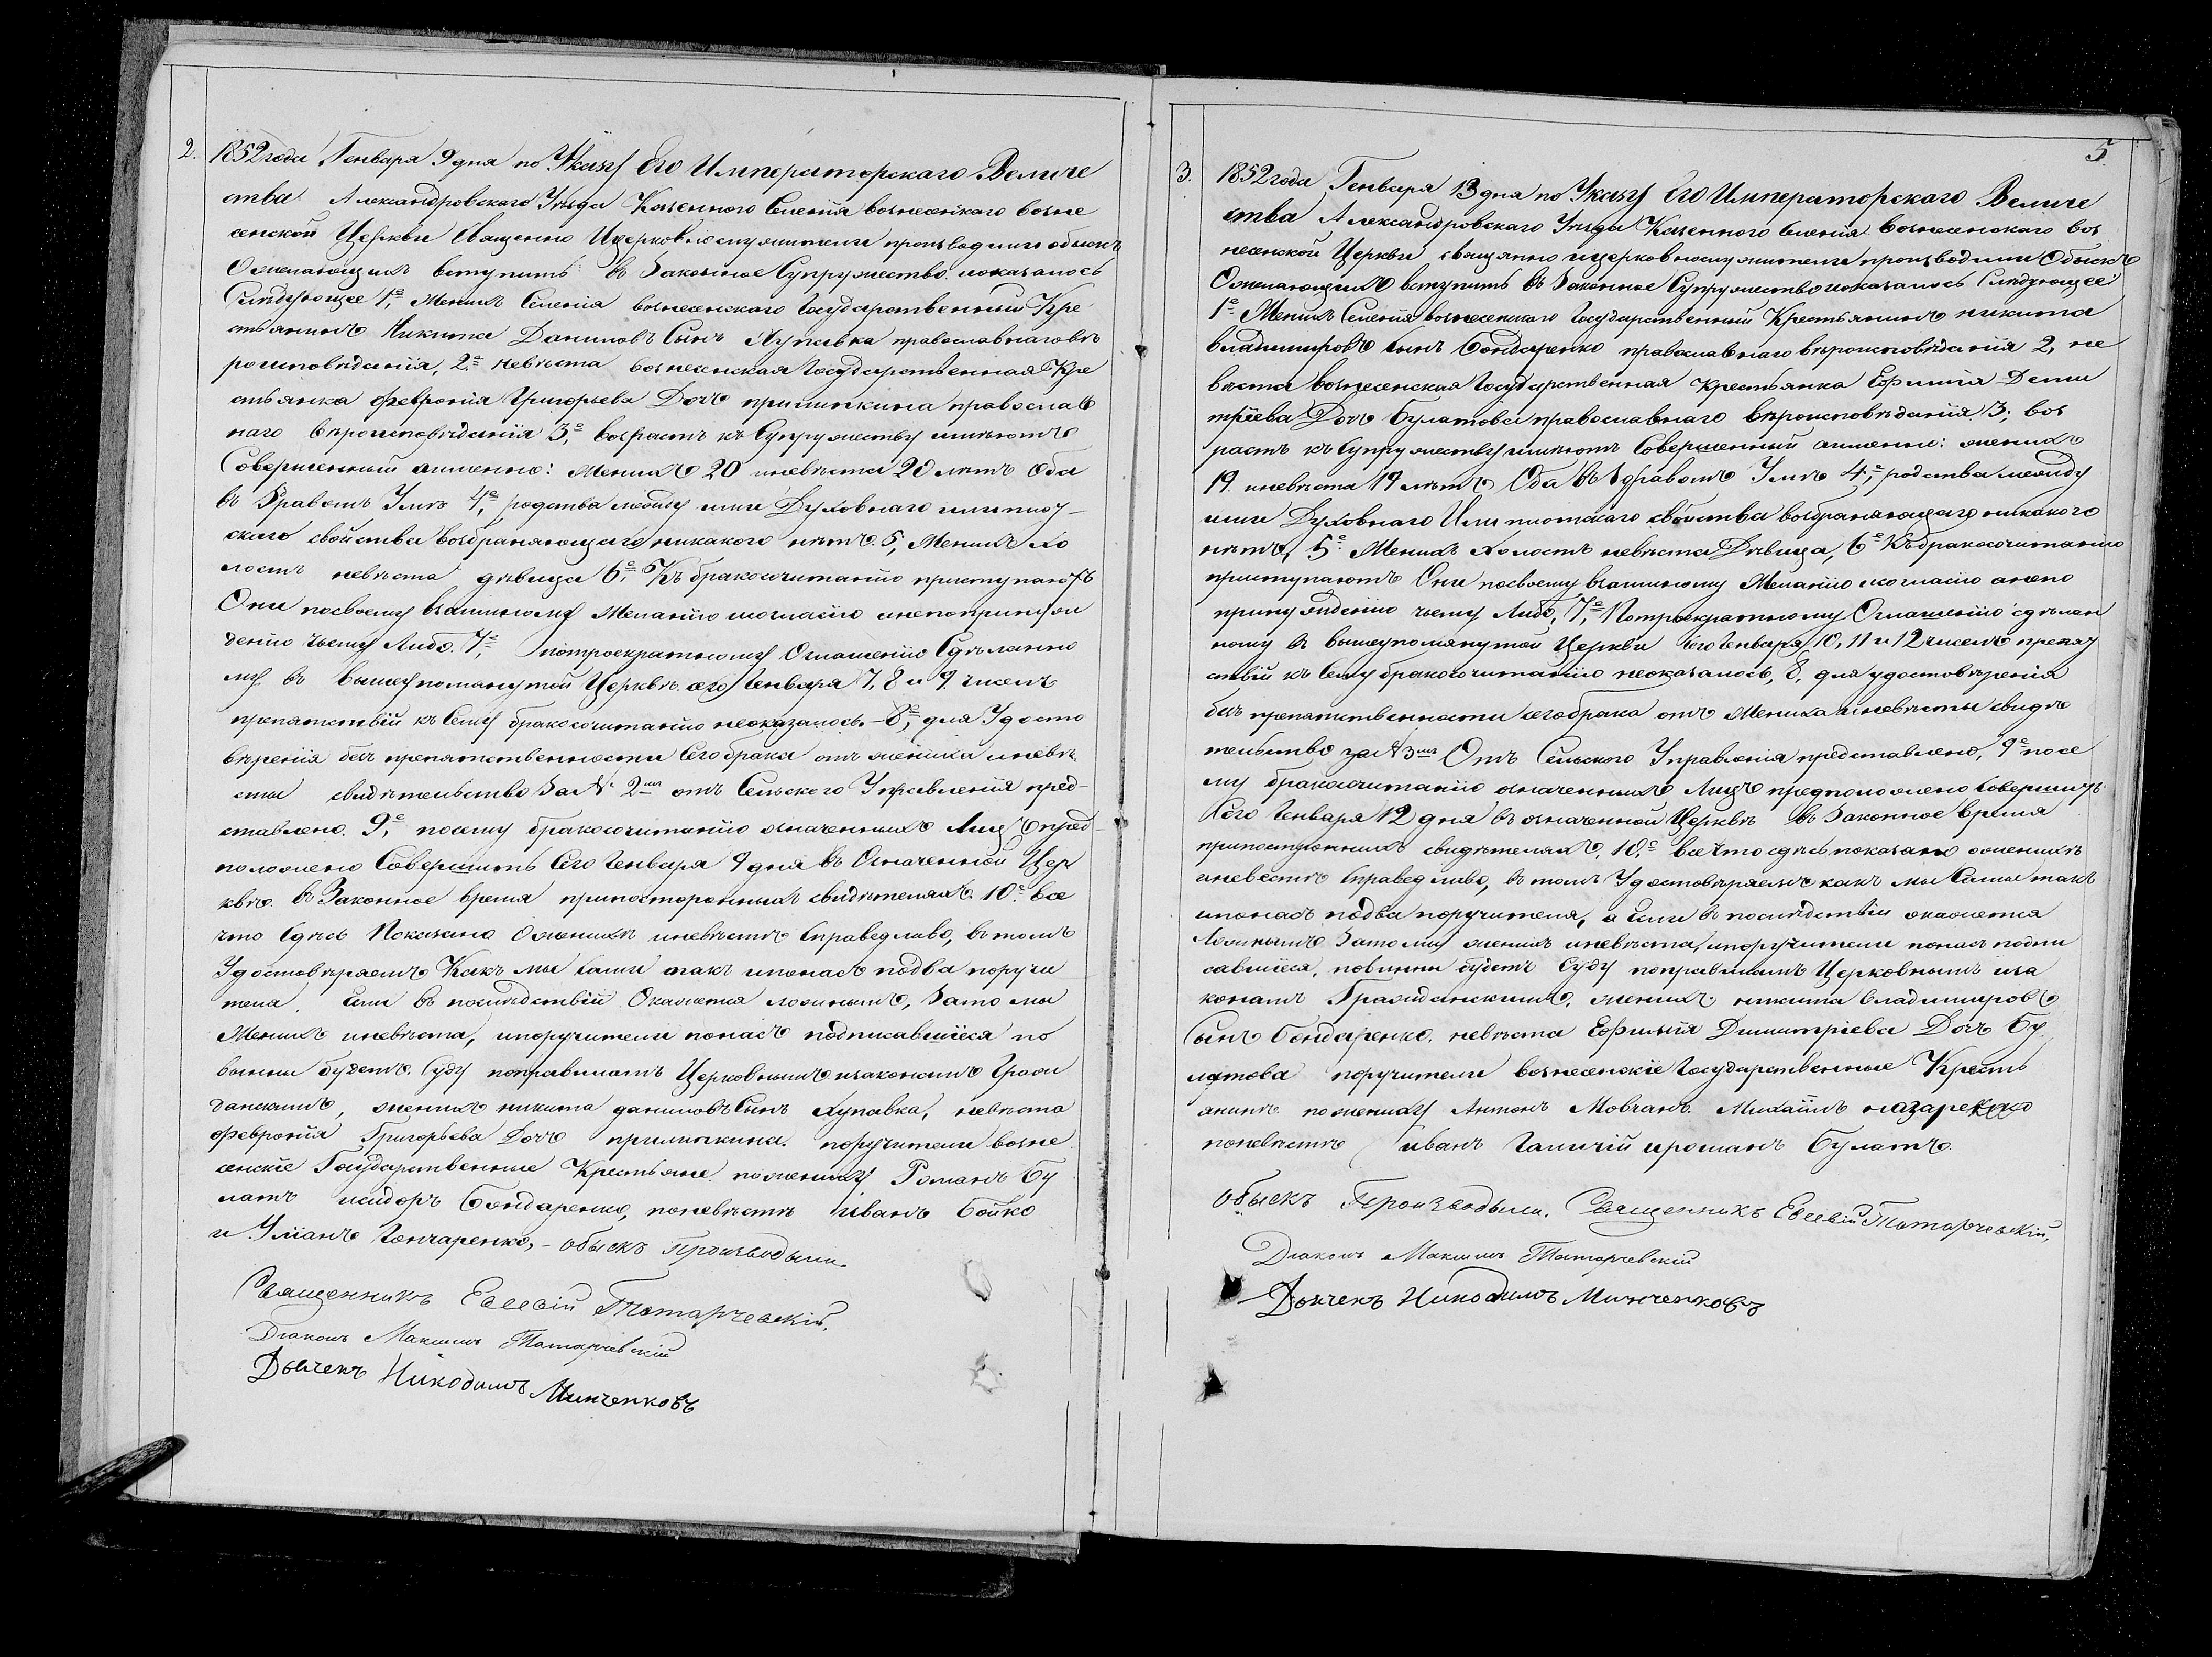 2. 1852 года Генваря 9 дня по Указу Его Императорскаго Величе
ства Александровскаго Уезда Казенного Селенія вознесенскаго возне
сенской Церкви Священно Ицерковнослужители производили обыскъ
Ожелающихъ вступить въ Законное Супружество показалось
Следующее 1е, Женихъ Селенія вознесенскаго Государственный Кре
стьянинъ Никита Даниловъ Сынъ Лупавка православнаго вѣ
роисповѣданія, 2е невѣста вознесенская Государственная Кре
стьянка Февронія Григорьева Дочь православ
наго вѣроисповѣданія 3е, возрастъ къ Супружеству имѣютъ
Совершенный аименно: Женихъ 20 иневѣста 20 лѣтъ Оба
въ Здравомъ Умѣ 4е, родства между ими Духовнаго или плот
скаго свойства возбраняющаго никакого нѣтъ. 5, Женихъ хо
лостъ невѣста дѣвица 6е, Къ бракосочитанію приступаютъ
Они посвоему взаимному Желанію исогласію инепопринуж
денію чьему Либо. 7е, потроекратному Оглашенію Сдѣланно
му въ вышеупомянутой Церквѣ сего Генваря 7, 8 и 9 числъ
препятствій къ Сему бракосочитанію неоказалось. 8е, для Удосто
вѣренія безъ препятственности Сего брака отъ жениха иневѣ
сты свидѣтельство За № 2мъ отъ Сельского Управленія пред
ставлено. 9е, посему бракосочитанію означенныхъ Лицъ пред
положено Совершить Сего Генваря 9 дня въ Означенной Цер
квѣ въ Законное время припостороннихъ свидѣтеляхъ. 10е все
что Сдѣсь Показано Оженихѣ иневѣстѣ Справедливо, въ томъ
Удостовѣряемъ Какъ мы сами такъ ипонасъ подва поручи
теля. Если въ послѣдствіи Окажется ложнымъ, Зато мы
Женихъ иневѣста, ипоручители понасъ подписавшіеся по
винны будемъ Суду поправиламъ Церковнымъ изаконамъ Граж
данскимъ, женихъ никита даниловъ Сынъ лупавка, невѣста
Февронія Григорьева Дочь поручители возне
сенскіе Государственные Крестьяне пожениху Романъ Бу
латъ исидоръ Бондаренко, поневѣстѣ иванъ Бойко
и Уліанъ Гончаренко, - обыскъ Производили.
Священникъ Евсевій Татарчевскій.
Діаконъ Максимъ Татарчевскій
Дьячекъ Никодимъ Минченковъ
5
3. 1852 года Генваря 13 дня по Указу Его Императорскаго Величе
ства Александровскаго Уезда Казенного Селенія вознесенскаго воз
несенской Церкви священно ицерковнослужители производили Обыскъ
Ожелающихъ вступить въ Законное Супружество показалось Следующее:
1е Женихъ Селенія вознесенскаго Государственный Крестьянинъ никита
владимировъ сынъ Бондаренко православнаго вѣроисповѣданія 2, не
вѣста вознесенская Государственная крестьянка Ефимія Дими
тріева Дочь Булатова православнаго вѣроисповѣданія 3; воз
растъ къ Супружеству имѣютъ Совершенный аименно: женихъ
19. иневѣста 19 лѣтъ Оба въ Здравомъ Умѣ 4е, родства между
ими Духовнаго Или плотскаго свойства возбраняющаго никакого
нѣтъ, 5е Женихъ Холостъ невѣста Дѣвица, 6е Къ бракосочитанію
приступаютъ Они посвоему взаимному Желанію исогласію анепо
принужденію чьему Либо, 7е, Потроекратному Оглашенію сдѣлан
ному въ вышеупомянутой Церкви сего Генваря 10, 11 и 12 числъ препят
ствій къ Сему бракосочитанію неоказалось, 8, для удостовѣренія
безъ препятственности сего брака отъ Жениха иневѣсты свидѣ
тельство за № 3мъ Отъ Сельского Управленія представлено, 9е посе
му бракосочитанію означенныхъ Лицъ предположено совершить
Сего Генваря 12 дня въ означенной Церквѣ въ Законное время
припостроннихъ свидѣтеляхъ, 10,е все что сдѣсь показано оженихѣ
иневестѣ Справедливо, въ томъ Удостовѣряемъ какъ мы Сами такъ
ипонасъ подва поручителя, а Если въ послѣдствіи окажется
Ложнымъ Зато мы женихъ иневѣста, ипоручители понасъ подпи
савшіеся, повинны будемъ Суду поправиламъ Церковнымъ иза
конамъ Гражданскимъ, женихъ никита владимировъ
Сынъ Бондаренко. невѣста Ефимія Димитріева Дочь Бу
латова поручители вознесенскіе Государственные Кресть
янинъ пожениху Антонъ Мовчанъ. Михаилъ назаренко
поневѣстѣ иванъ Галичій ироманъ Булатъ.
Обыскъ Производыли. Священникъ Евсевій Татарчевскій,
Діаконъ Максимъ Татарчевскій
Дьячекъ Никодимъ Минченковъ